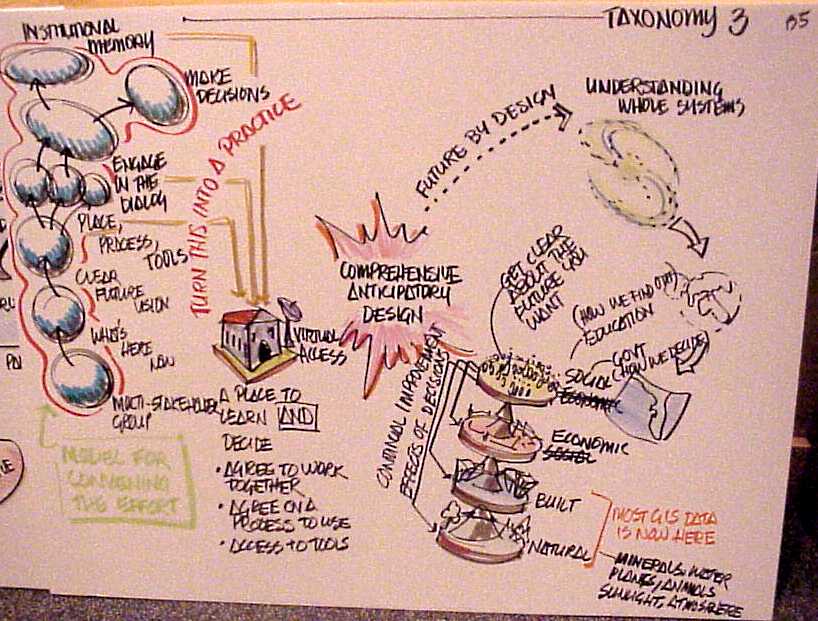 TAXONOMY 3
INSTITUTIONAL
MEMORY
MAKE
DECISIONS
ENGAGE
IN THE
DIALOG
PLACE,
PROCESS,
TOOLS
CLEAR
FUTURE
VISION
WHO'S
HERE
NOW
MULTI-STAKEHOLDER
GROUP
MODEL FOR
CONVENING
THE EFFORT
TURN THIS INTO A PRACTICE
VIRTUAL
ACCESS
A PLACE TO
LEARN AND
DECIDE
• AGREE TO WORK
TOGETHER
• AGREE ON A
PROCESS TO USE
• ACCESS TO TOOLS
COMPREHENSIVE
ANTICIPATORY
DESIGN
FUTURE BY DESIGN
UNDERSTANDING
WHOLE SYSTEMS
GET CLEAR
ABOUT THE
FUTURE YOU
WANT
(HOW WE FIND OUT)
EDUCATION
GOVT
(HOW WE DECIDE)
SOCIAL
ECONOMIC
ECONOMIC
SOCIAL
BUILT
NATURAL
CONTINUAL IMPROVEMENT
EFFECTS OF DECISIONS
MOST GIS DATA
IS NOW HERE
MINERALS, WATER
PLANTS, ANIMALS
SUNLIGHT, ATMOSPHERE